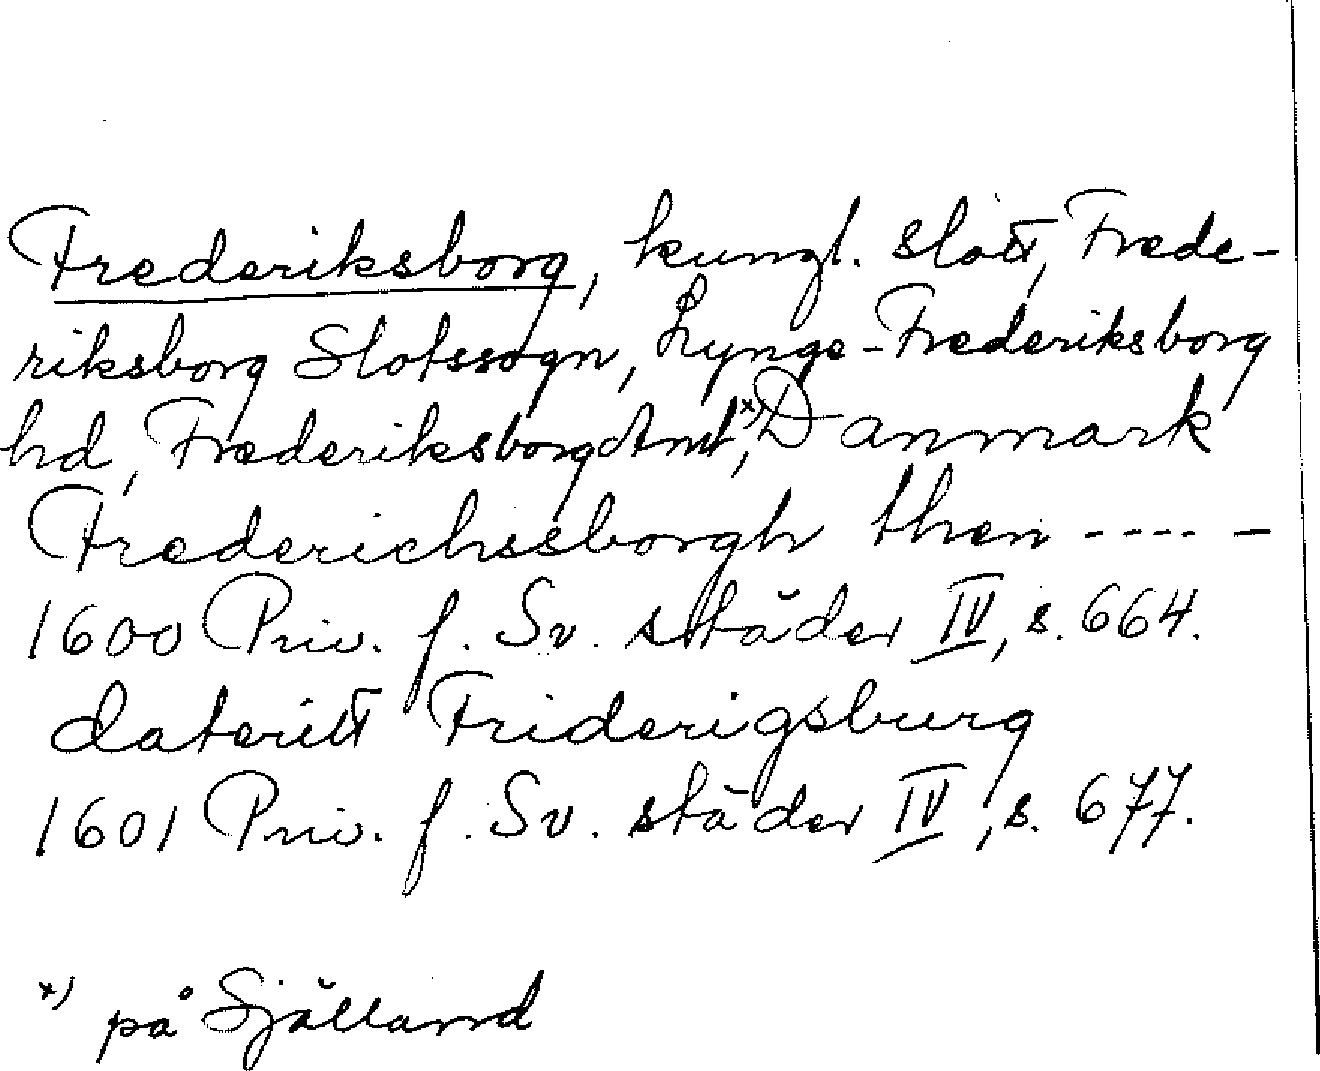 Frederiksborg, kungl. slott, Frede-
riksborg Slotssogn, Lynge-Frederiksborg
hd, Frederiksborg Amt,*) Danmark
Frederichssborgh then -----
1600 Priv. f. Sv. städer IV, s. 664.
dateritt Friderigsburg
1601 Priv. f. Sv. städer IV, s. 677.
*) på Själland